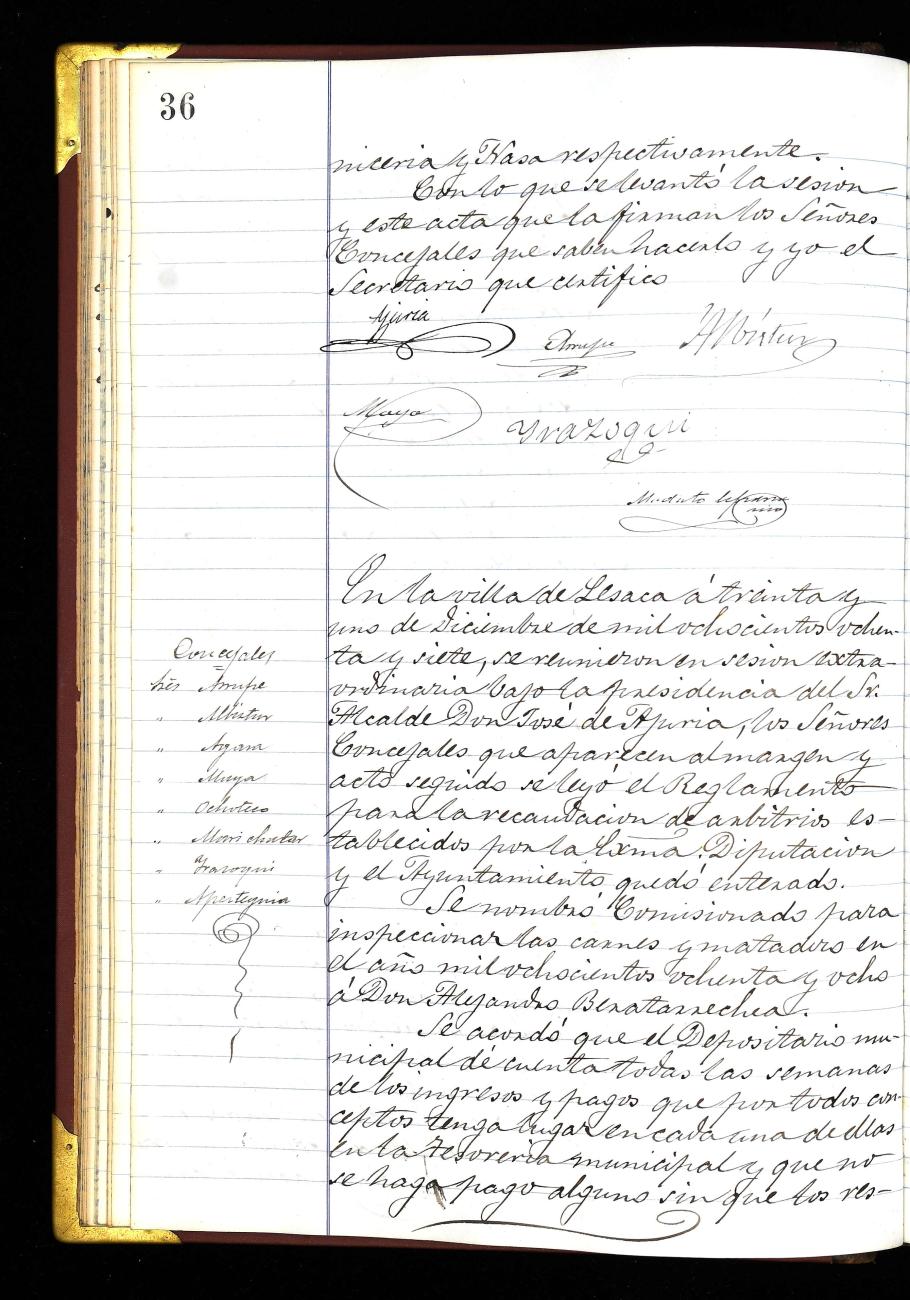 36
niceria y Kasa respectivamente.
Con lo que se levantó la sesion
y este acta que la firman los Señores
Concejales que saben hacerlo y yo el
Secretario que certifico
Ajuria
Arrupe
Albistur
Maya
Yrazoqui
En la villa de Lesaca á treinta y
uno de Diciembre de mil ochocientos ochen-
ta y siete, se reunieron en sesion extra-
ordinaria bajo la presidencia del Sr.
Alcalde Don José de Ajuria, los Señores
Concejales que aparecen al margen y
acto seguido se leyó el Reglamento
para la recaudacion de arbitrios es-
tablecidos por la Exma. Diputacion
y el Ayuntamiento quedó enterado.
Se nombró Comisionado para
inspeccionar las carnes y matadero en
el año mil ochocientos ochenta y ocho
á Don Alejandro Benatarrechea.
Se acordó que el Depositario mu-
nicipal dé cuenta todas las semanas
de los ingresos y pagos que por todos con-
ceptos tenga lugar en cada una de ellas
en la Tesoreria municipal y que no
se haga pago alguno sin que los res-
Concejales
Arrupe
" Albistur
" Maya
" Ochoteco
" Yrazoqui
" Apezteguia